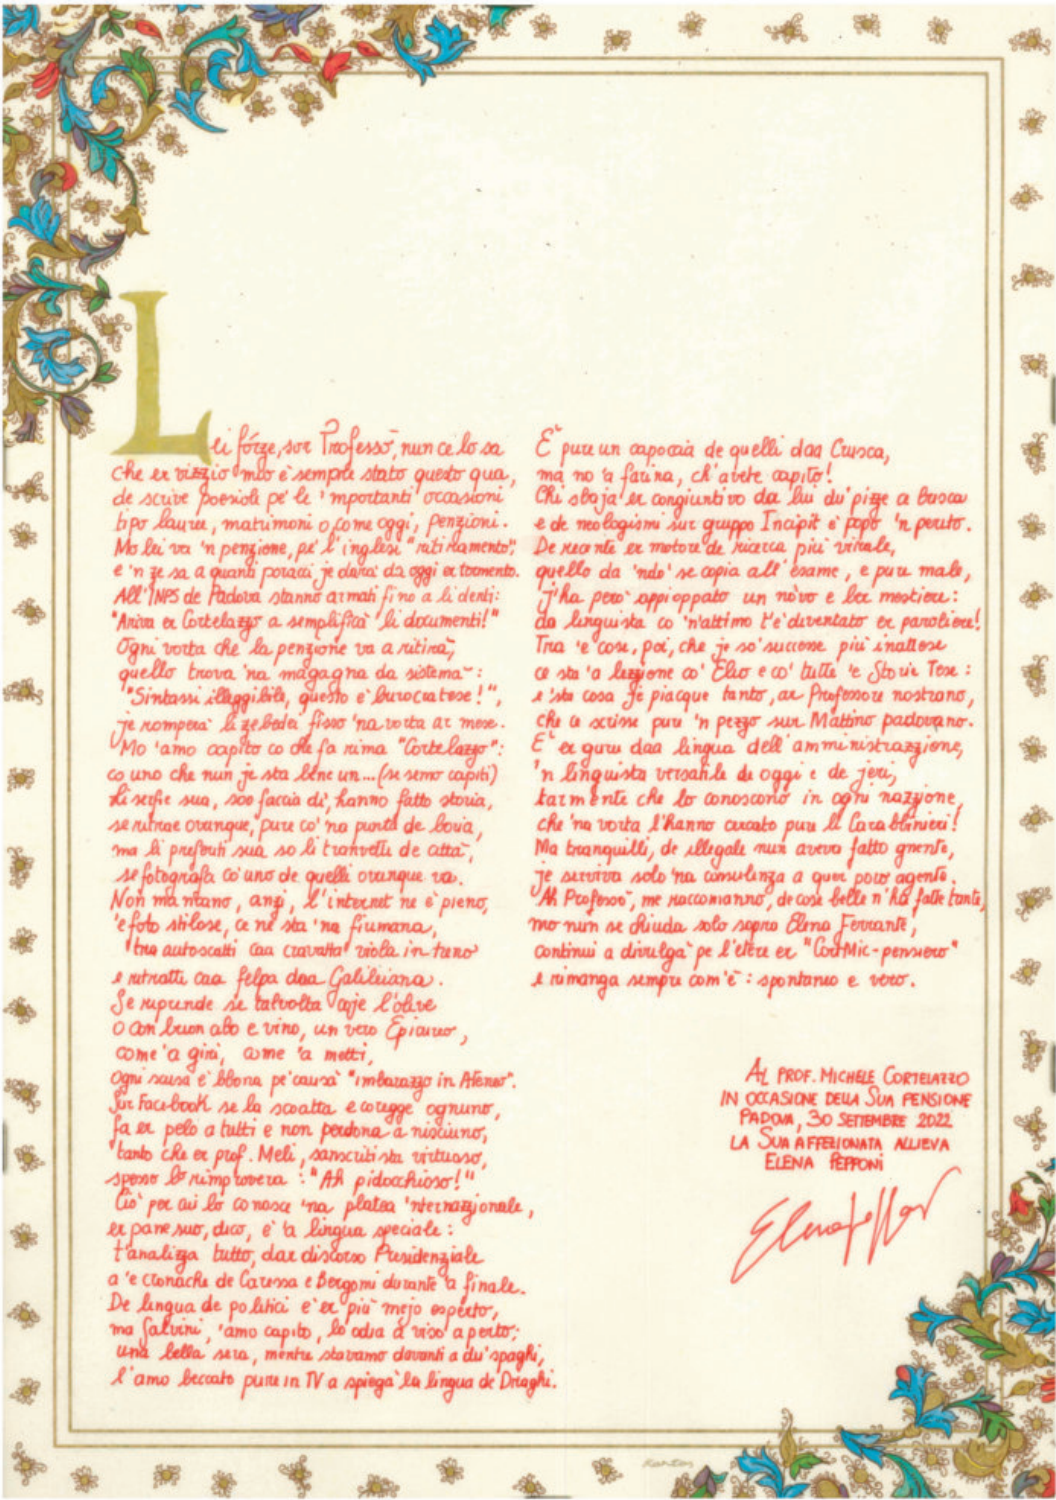 Lei forze, sor Professò, nun ce lo sa
che er vizzio mio è sempre stato questo qua,
de scrive poesioli pe' le 'mportanti occasioni
tipo lauree, matrimoni o come oggi, penzioni.
Mo lei va 'n penzione, pe' l'inglesi "ritiramento",
e 'n ze sa a quanti poracci je darà da oggi er tormento.
All'INPS de Padova stanno armati fino a li denti:
"Ariva er Cortelazzo a semplificà li documenti!"
Ogni vorta che la penzione va a ritirà,
quello trova 'na magagna da sistemà:
"Sintassi illeggibile, questo è burocratese!",
je romperà li zebedei fisso 'na vorta ar mese.
Mo 'amo capito co che fa rima "Cortelazzo":
co uno che nun je sta bene un... (se semo capiti)
Li selfie sua, soo faccia dì, hanno fatto storia,
se ritrae ovunque, pure co' na punta de boria,
ma li preferiti sua so li tranvetti de città,
se fotografa co' uno de quelli ovunque va.
Non mancano, anzi, l'internet ne è pieno,
'e foto stilose, ce ne sta 'na fiumana,
tra autoscatti caa cravatta viola in treno
e ritratti caa felpa daa Galileiana.
Se riprende se talvolta coje l'olive
o con buon cibo e vino, un vero Epicuro,
come 'a giri, come 'a metti,
ogni scusa è bbona pe' causà "imbarazzo in Ateneo".
Sur Facebook se la scoatta e coregge ognuno,
fa er pelo a tutti e non perdona a nisciuno,
tanto che er prof. Meli, sanscritista virtuoso,
spesso lo rimprovera: "Ah pidocchioso!"
Ciò per cui lo conosce 'na platea 'nternazzjonale,
er pane suo, dico, è 'a lingua speciale:
t'analizza tutto, dar discorso Presidenziale
a 'e cronache de Caressa e Bergomi durante 'a finale.
De lingua de politici è er più mejo esperto,
ma Salvini, 'amo capito, lo odia a viso aperto;
una bella sera, mentre stavamo davanti a du' spaghi,
l'amo beccato pure in TV a spiegà la lingua de Draghi.
È pure un capoccia de quelli daa Crusca,
ma no 'a farina, ch'avete capito!
Chi sbaja er congiuntivo da lui du' pizze a busca
e de neologismi sur gruppo Incipit è popo 'n perito.
De recente er motore de ricerca più virale,
quello da 'ndo' se copia all'esame, e pure male,
j'ha però appioppato un novo e ber mestiere:
da linguista co 'n'attimo t'è diventato er paroliere!
Tra 'e cose, poi, che je so' successe più inattese
ce sta 'a lezzione co' Elio e co' tutte 'e Storie Tese:
e 'sta cosa je piacque tanto, ar Professore nostrano,
che ce scrisse pure 'n pezzo sur Mattino padovano.
È er guru daa lingua dell'amministrazzione,
'n linguista versatile de oggi e de jeri,
tarmente che lo conoscono in ogni nazzjone,
che 'na vorta l'hanno cercato pure li Carabbinieri!
Ma tranquilli, de illegale nun aveva fatto gnente,
je serviva solo 'na consulenza a quer poro agente.
Ah Professò, me raccomanno, de cose belle n'ha fatte tante,
mo nun se chiuda solo sopra Elena Ferrante,
continui a divulgà pe l'etere er "CortMic-pensiero"
e rimanga sempre com'è: spontaneo e vero.
AL PROF. MICHELE CORTELAZZO
IN OCCASIONE DELLA SUA PENSIONE
PADOVA, 30 SETTEMBRE 2022
LA SUA AFFEZIONATA ALLIEVA
ELENA PEPPONI